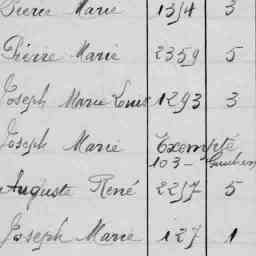 Pierre Marie 1354 3
Pierre Marie 2359 5
Joseph Marie Louis 1293 3
Joseph Marie Exempté
103 -
Auguste René 2257 5
Joseph Marie 127 1